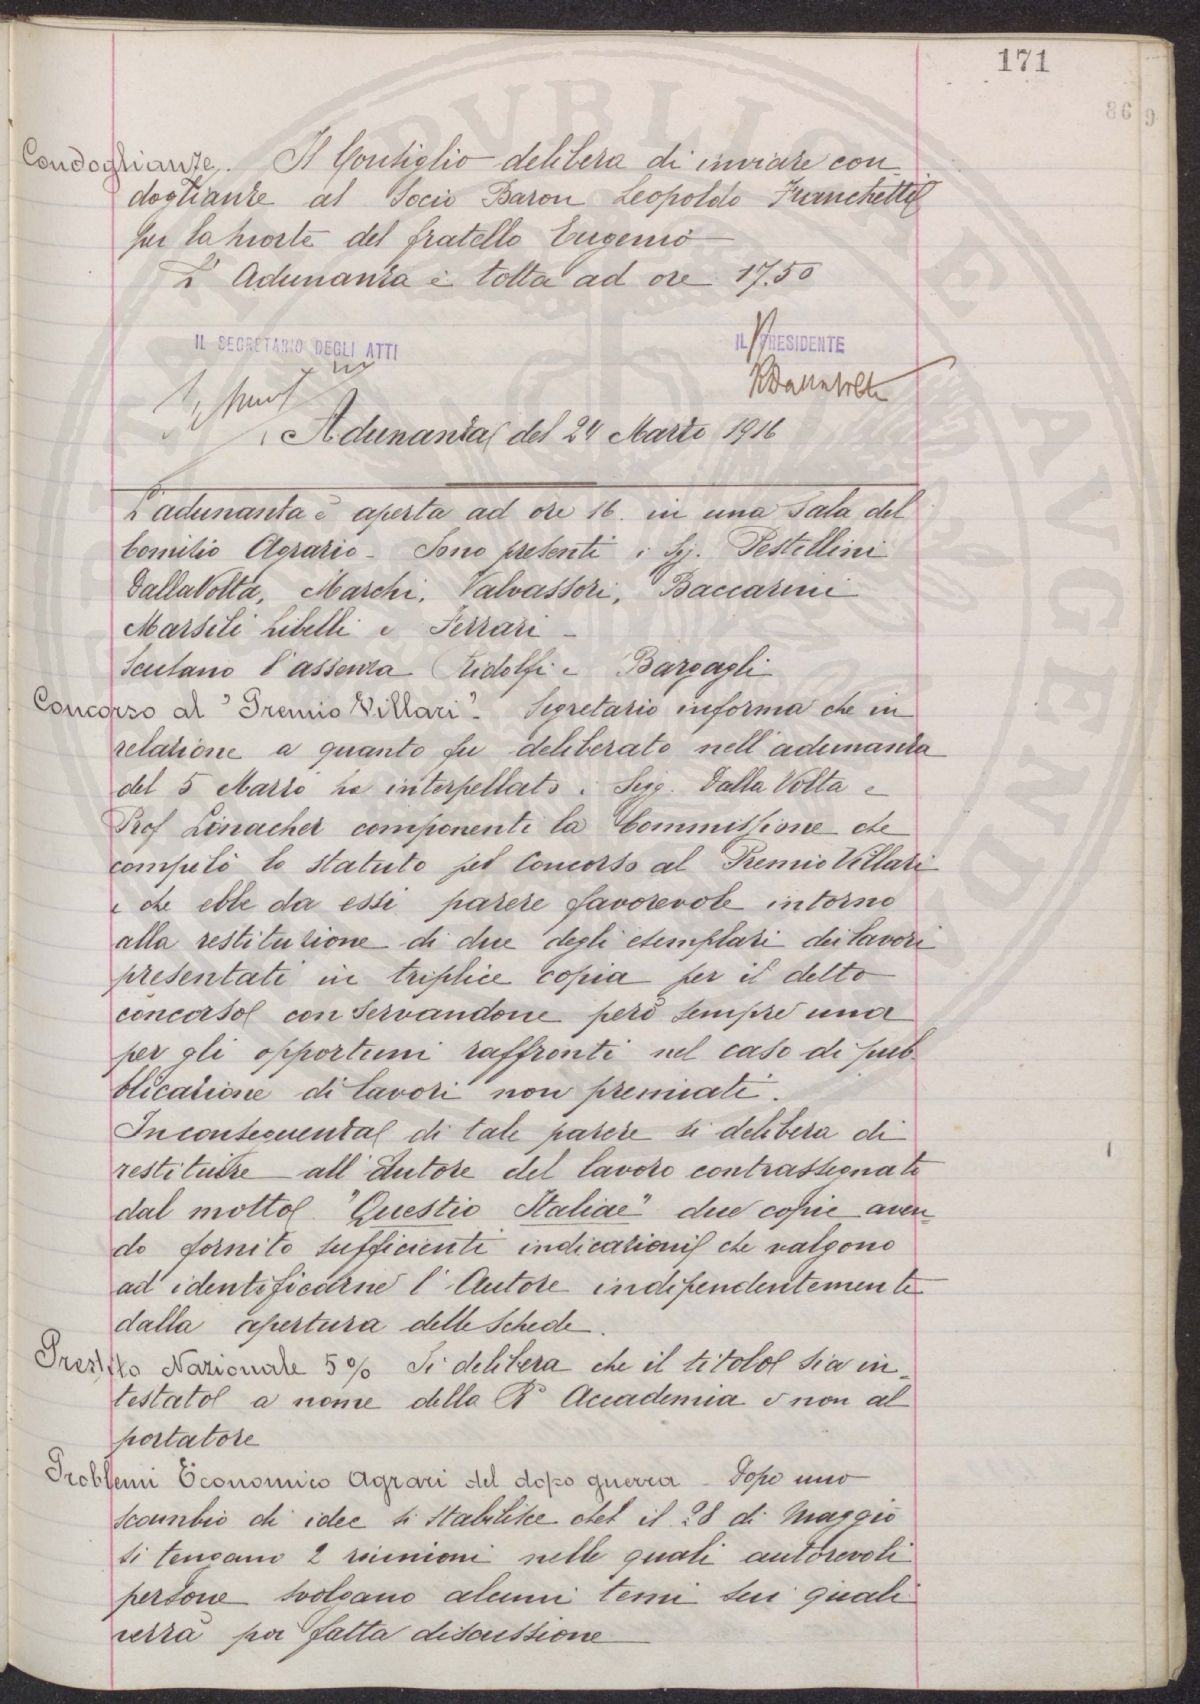 171
86 9
Condoglianze. Il Consiglio delibera di inviare con=
doglianze al Socio Baron Leopoldo Franchetti
per la morte del fratello Eugenio
L'Adunanza è tolta ad ore 17.50
IL SEGRETARIO DEGLI ATTI
IL PRESIDENTE
Adunanza del 24 Marzo 1916
L'adunanza è aperta ad ore 16. in una Sala del
Comitio Agrario - Sono presenti i Sig. Pestellini
Dalla Volta, Marchi, Valvassori, Baccarini
Marsili Libelli e Ferrari -
Scusano l'assenza Ridolfi e Bargagli
Concorso al "Premio Villari" - Segretario informa che in
relazione a quanto fu deliberato nell'adunanza
del 5 Marzo ha interpellato i Sigg. Dalla Volta e
Prof Linacher componenti la Commissione che
compilò lo statuto pel Concorso al Premio Villari
e che ebbe da essi parere favorevole intorno
alla restituzione di due degli esemplari dei lavori
presentati in triplice copia per il detto
concorso conservandone però sempre una
per gli opportuni raffronti nel caso di pub
blicazione di lavori non premiati.
In conseguenza di tale parere si delibera di
restituire all'Autore del lavoro contrassegnato
dal motto "Questio Italiae" due copie aven=
do fornito sufficienti indicazioni che valgono
ad identificarne l'Autore indipendentemente
dalla apertura delle schede.
Prestito Nazionale 5% Si delibera che il titolo sia in=
testato a nome della Rª Accademia e non al
portatore
Problemi Economico Agrari del dopo guerra - Dopo uno
scambio di idee si stabilisce che il 28 di Maggio
si tengano 2 riunioni nelle quali autorevoli
persone svolgano alcuni temi sui quali
verrà poi fatta discussione